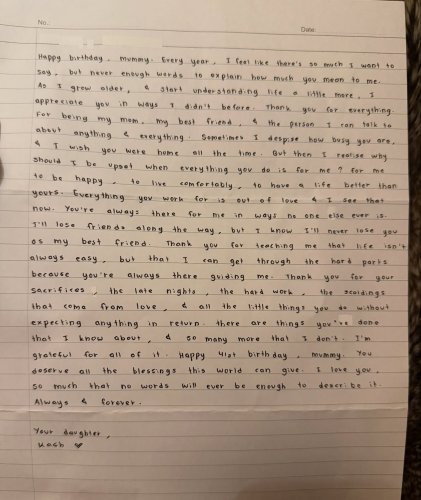 No.:
Date:
Happy birthday, mummy. Every year, I feel like there's so much I want to
say, but never enough words to explain how much you mean to me.
As I grow older, & start understanding life a little more, I
appreciate you in ways I didn't before. Thank you for everything.
For being my mom, my best friend, & the person I can talk to
about anything & everything. Sometimes I despise how busy you are,
& I wish you were home all the time. But then I realise why
should I be upset when everything you do is for me? For me
to be happy, to live comfortably, to have a life better than
yours. Everything you work for is out of love & I see that
now. You're always there for me in ways no one else ever is.
I'll lose friends along the way, but I know I'll never lose you
as my best friend. Thank you for teaching me that life isn't
always easy, but that I can get through the hard parts
because you're always there guiding me. Thank you for your
sacrifices, the late nights, the hard work, the scoldings
that come from love, & all the little things you do without
expecting anything in return. there are things you've done
that I know about, & so many more that I don't. I'm
grateful for all of it. Happy 41st birthday, mummy. You
deserve all the blessings this world can give. I love you,
so much that no words will ever be enough to describe it.
Always & forever.
Your daughter,
Kash ♥